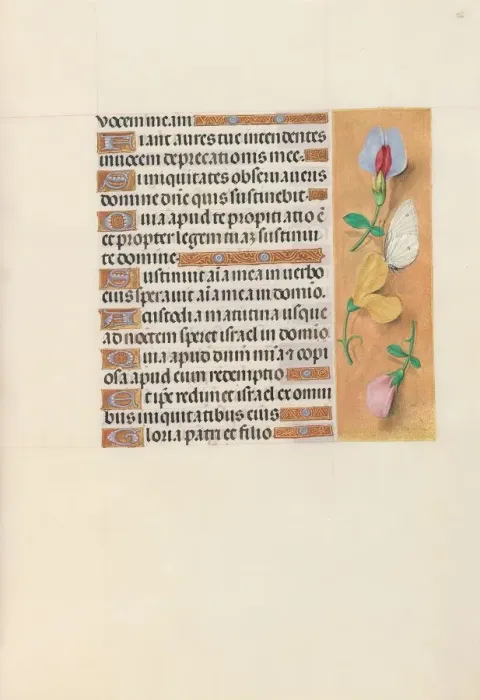 vocem meam
Fiant aures tue intendentes
in vocem deprecationis mee.
Si iniquitates observaveris
domine dñe quis sustinebit.
Quia apud te propitiatio ẽ
et propter legem tuaʒ sustinui
te domine.
Sustinuit aĩa mea in verbo
eius speravit aĩa mea in domĩo.
A custodia matutina usque
ad noctem speret israel in domĩo
Quia apud dnm mĩa ⁊ copi
osa apud eum redemptio
Et ipe redimet israel ex omni
bus iniquitatibus eius
Gloria patri et filio